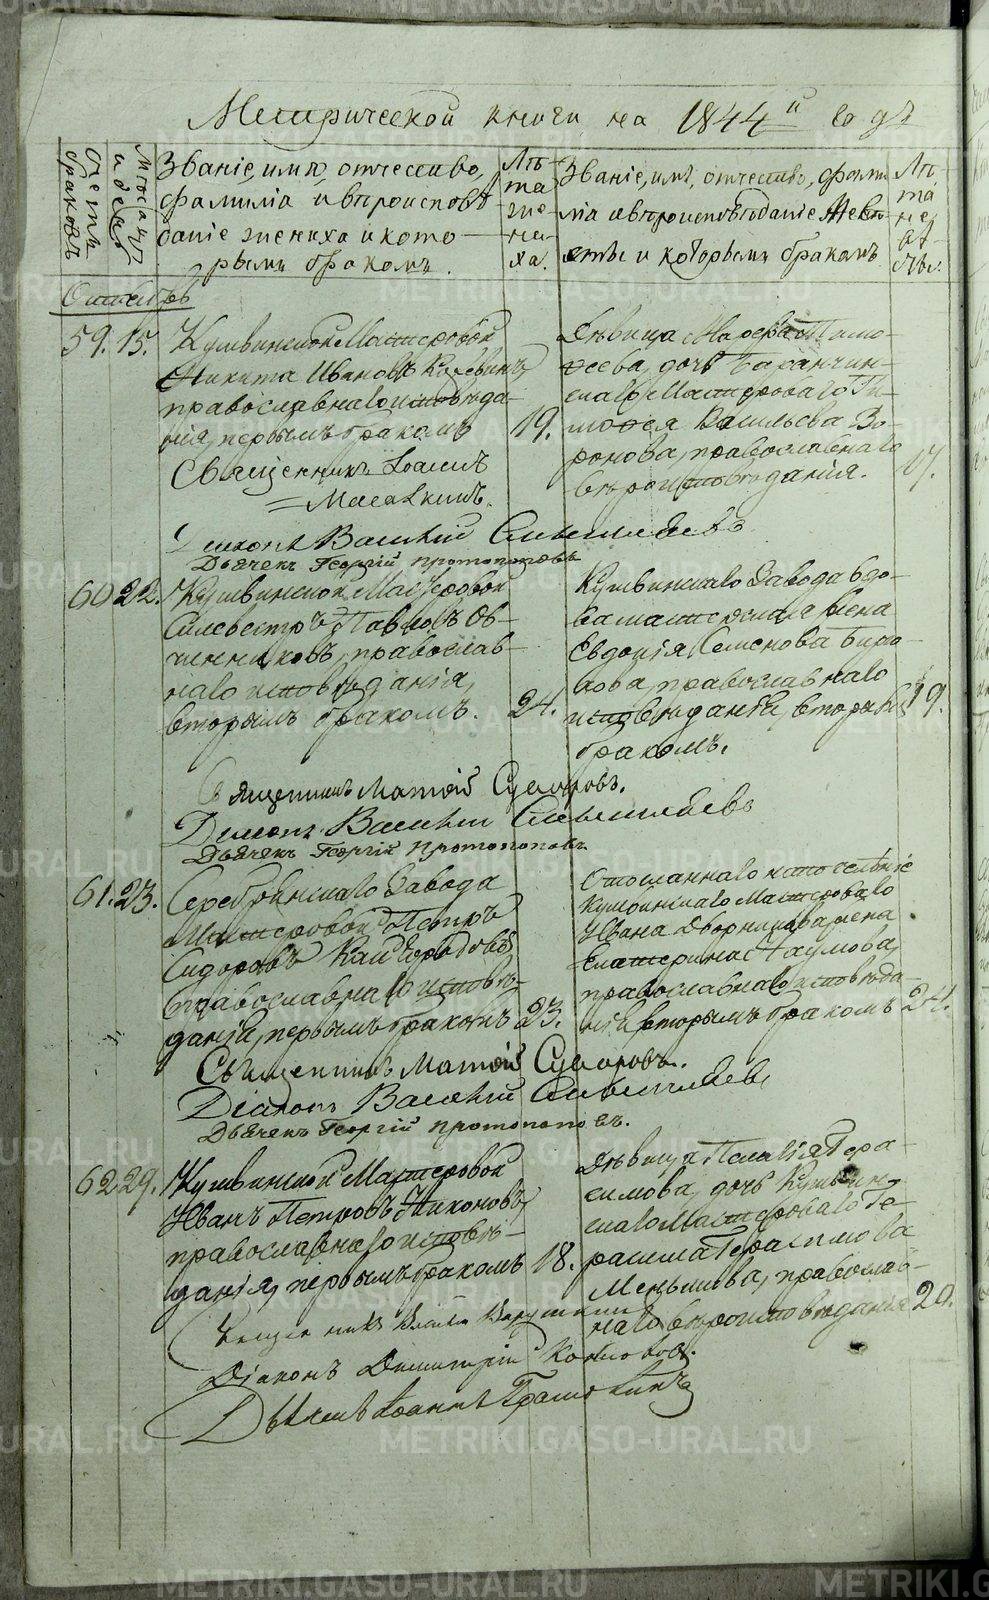 METRIKI.GASO-URAL.RU
Метрической книги на 1844й годъ
Счетъ браковъ
Мѣсяцъ и день
Званіе, имя, отчество,
фамилія и вѣроисповѣ-
даніе жениха и кото-
рымъ бракомъ.
Лѣ-
та
же-
ни-
ха.
Званіе, имя, отчество, фами-
лія и вѣроисповѣданіе невѣ-
сты и которымъ бракомъ
Лѣ-
та
не-
вѣ-
сты.
Октябрь
59. 15. Кушвинской Мастеровой
Никита Ивановъ
православнаго исповѣда-
нія, первымъ бракомъ 19.
Дѣвица Марфа Тимо-
ѳеева, дочь Баранчин-
скаго Мастероваго Ти-
моѳея Васильева Во-
ронова, православнаго
вѣроисповѣданія. 17.
Священникъ Іоаннъ
Діаконъ Василій
Дьячекъ Георгій Протопоповъ
60 22. Кушвинской Мастеровой
Силевестръ Павловъ Ов-
чинниковъ, православ-
наго исповѣданія,
вторымъ бракомъ. 24.
Кушвинскаго Завода вдо-
ва мастерская жена
Евдокія Семенова Бирю-
кова, православнаго
исповѣданія, вторымъ 19.
бракомъ.
Священникъ Матѳій Суворовъ.
Діаконъ Василій
Дьячекъ Георгій Протопоповъ
61. 23. Серебрянскаго Завода
Мастеровой Петръ
Сидоровъ Кайгородовъ
православнаго исповѣ-
данія, первымъ бракомъ 23.
Отосланнаго на поселѣніе
Кушвинскаго Мастероваго
Ивана Дворникова жена
Екатерина Наумова,
православнаго исповѣда-
нія вторымъ бракомъ 24.
Священникъ Матѳій Суворовъ.
Діаконъ Василій
Дьячекъ Георгій Протопоповъ.
62 29. Кушвинской Мастеровой
Иванъ Петровъ Никоновъ,
православнаго исповѣ-
данія, первымъ бракомъ 18.
Дѣвица Пелагія Гера-
симова, дочь Кушвин-
скаго Мастероваго Ге-
расима Герасимова
Меньшива, православ-
наго вѣроисповѣданія 20.
Священникъ
Діаконъ Димитрій
Дьячекъ Іоаннъ